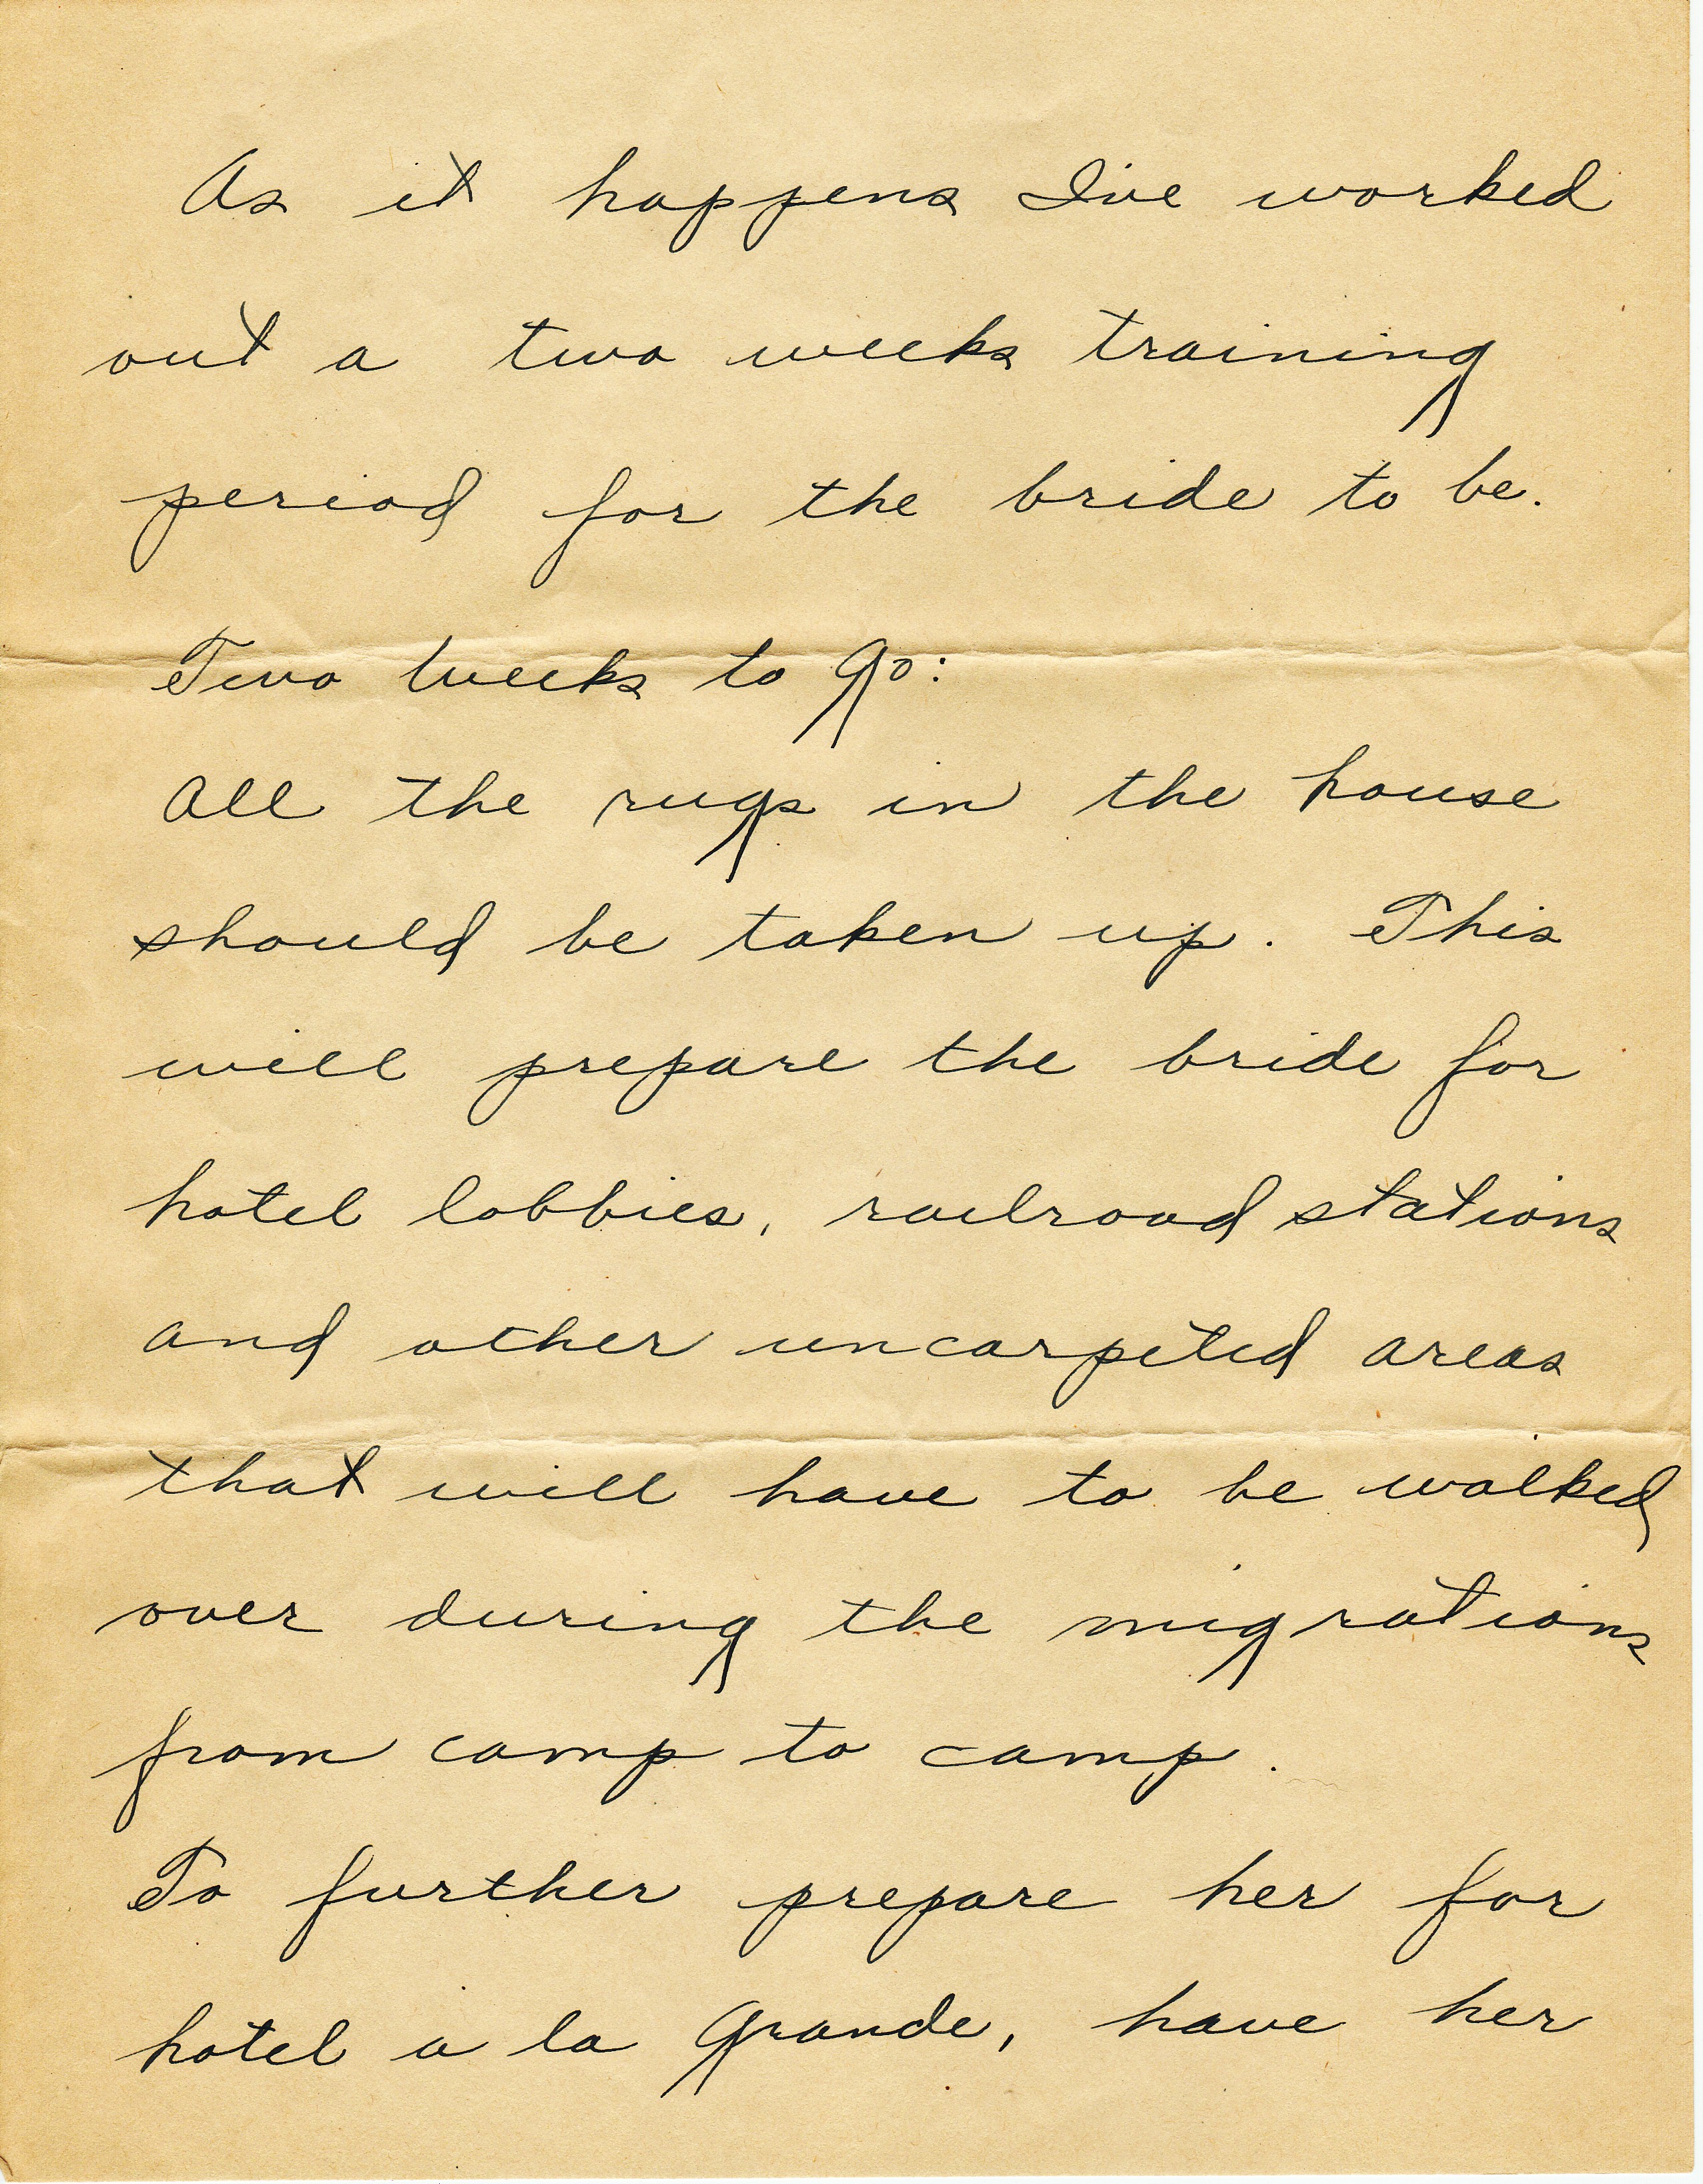 As it happens I've worked
out a two weeks training
period for the bride to be.
Two Weeks to go:
All the rugs in the house
should be taken up. This
will prepare the bride for
hotel lobbies, railroad stations
and other uncarpeted areas
that will have to be walked
over during the migrations
from camp to camp.
To further prepare her for
hotel a la Grande, have her